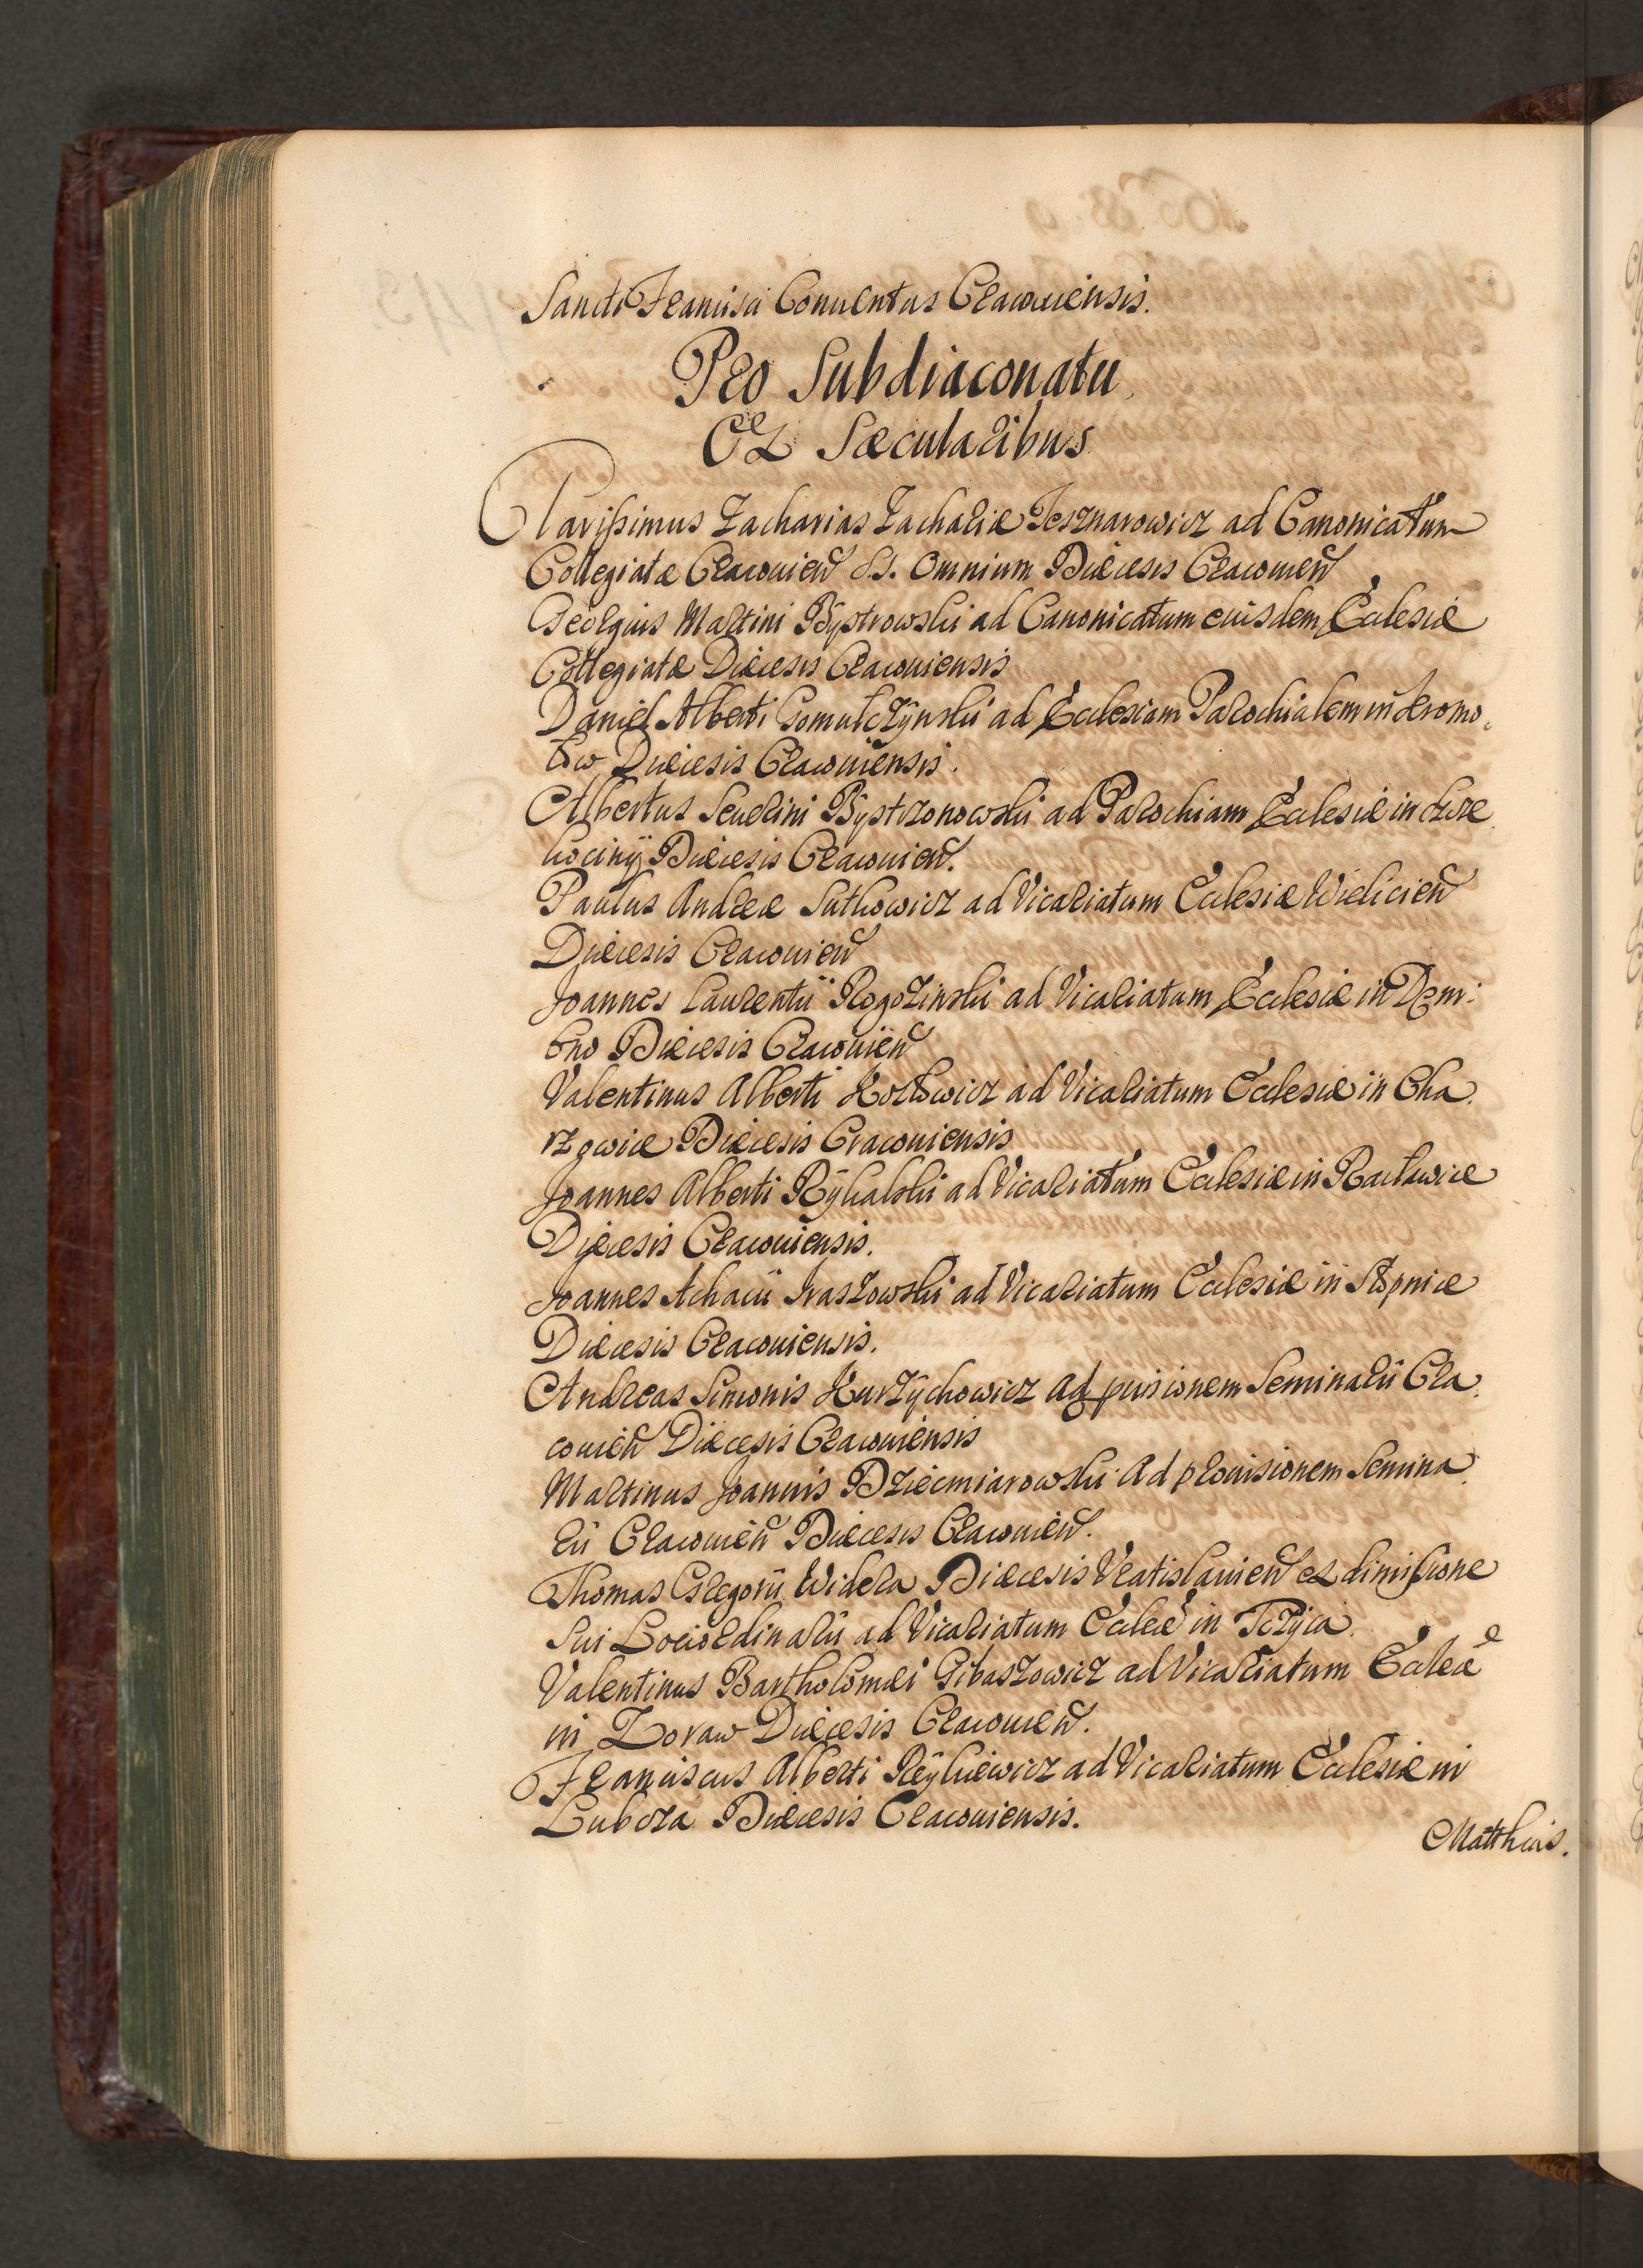 Sancti Francisci Conuentus Cracouiensis.
Pro Subdiaconatu
Ex Sæcularibus
Clarissimus Zacharias Zachariæ Jesznarowicz ad Canonicatum
Collegiatæ Cracouien SS. Omnium Diæcesis Cracouien
Georgius Martini Bystrowski ad Canonicatum eiusdem Ecclesiæ
Collegiatæ Diæcesis Cracouiensis
Daniel Alberti Gomulczÿnski ad Ecclesiam Parochialem in Kromo,
łow Diæcesis Cracouiensis.
Albertus Seuerini Bystrzonowski ad Parochiam Ecclesiæ in
Diæcesis Cracouien.
Paulus Andreæ Sutkowicz ad Vicariatum Ecclesiæ Wielicien
Diæcesis Cracouien
Joannes Laurentii Rogozinski ad Vicariatum Ecclesiæ in Dem:
bno Diæcesis Cracouien
Valentinus Alberti Kozłowicz ad Vicariatum Ecclesiæ in Cha,
rzowice Diæcesis Cracouiensis
Joannes Alberti Rÿbalski ad Vicariatum Ecclesiæ in Racławice
Diæcesis Cracouiensis.
Joannes Achacii Iraszowski ad Vicariatum Ecclesiæ in Stopnice
Diæcesis Cracouiensis.
Andreas Simonis Kurzÿchowicz ad puisionem Seminarii Cra,
couien Diæcesis Cracouiensis
Martinus Joannis Dziecmiarowski ad prouisionem Semina,
rii Cracouien Diæcesis Cracouien.
Thomas Gregorii Widera Diæcesis Vratislauien ex dimissione
sui Lociordinarii ad Vicariatum Eccleæ in Tczyca
Valentinus Bartholomæi Gibaszowicz ad Vicariatum Eccleæ
in Zoraw Diæcesis Cracouien.
Franciscus Alberti Rÿkiewicz ad Vicariatum Ecclesiæ in
Lubcza Diæcesis Cracouiensis.
Matthias.